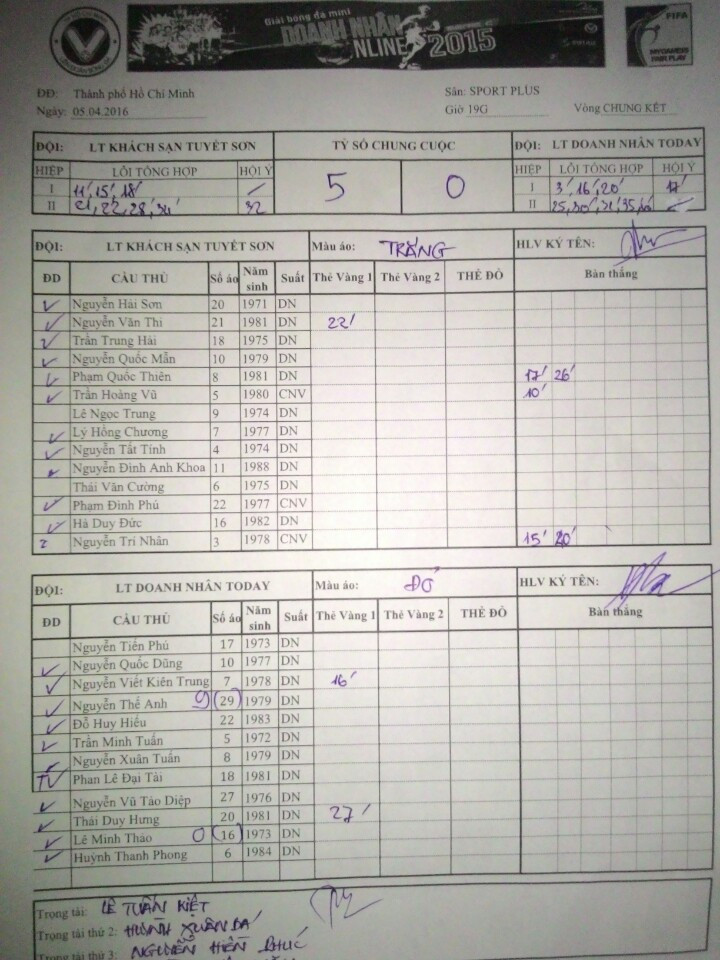 Giải bóng đá mini
DOANH NHÂN
NLINE 2015
FIFA
MY GAME IS
FAIR PLAY
ĐĐ: Thành phố Hồ Chí Minh Sân: SPORT PLUS
Ngày: 05.04.2016 Giờ 19G Vòng CHUNG KẾT
ĐỘI: LT KHÁCH SẠN TUYẾT SƠN TỶ SỐ CHUNG CUỘC ĐỘI: LT DOANH NHÂN TODAY
HIỆP LỖI TỔNG HỢP HỘI Ý 5 0 HIỆP LỖI TỔNG HỢP HỘI Ý
I 11', 15', 18' I 3', 16', 20' 17'
II 21, 22, 28, 34' 32 II 25, 30', 31', 35,
ĐỘI: LT KHÁCH SẠN TUYẾT SƠN Màu áo: TRẮNG HLV KÝ TÊN:
ĐD CẦU THỦ Số áo Năm sinh Suất Thẻ Vàng 1 Thẻ Vàng 2 THẺ ĐỎ Bàn thắng
Nguyễn Hải Sơn 20 1971 DN
Nguyễn Văn Thi 21 1981 DN 22'
Trần Trung Hải 18 1975 DN
Nguyễn Quốc Mẫn 10 1979 DN
Phạm Quốc Thiên 8 1981 DN 17' 26'
Trần Hoàng Vũ 5 1980 CNV 10'
Lê Ngọc Trung 9 1974 DN
Lý Hồng Chương 7 1977 DN
Nguyễn Tất Tính 4 1974 DN
Nguyễn Đình Anh Khoa 11 1988 DN
Thái Văn Cường 6 1975 DN
Phạm Đình Phú 22 1977 CNV
Hà Duy Đức 16 1982 DN
Nguyễn Trí Nhân 3 1978 CNV 15' 20'
ĐỘI: LT DOANH NHÂN TODAY Màu áo: ĐỎ HLV KÝ TÊN:
ĐD CẦU THỦ Số áo Năm sinh Suất Thẻ Vàng 1 Thẻ Vàng 2 THẺ ĐỎ Bàn thắng
Nguyễn Tiến Phú 17 1973 DN
Nguyễn Quốc Dũng 10 1977 DN
Nguyễn Viết Kiên Trung 7 1978 DN 16'
Nguyễn Thế Anh 9 (29) 1979 DN
Đỗ Huy Hiếu 22 1983 DN
Trần Minh Tuấn 5 1972 DN
Nguyễn Xuân Tuấn 8 1979 DN
Phan Lê Đại Tài 18 1981 DN
Nguyễn Vũ Tảo Diệp 27 1976 DN
Thái Duy Hưng 20 1981 DN 27'
Lê Minh Thảo 0 (16) 1973 DN
Huỳnh Thanh Phong 6 1984 DN
Trọng tài: LÊ TUẤN KIỆT
Trọng tài thứ 2: HUỲNH XUÂN ĐÁ
Trọng tài thứ 3: NGUYỄN HIỀN PHÚC